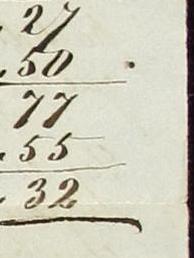 . 27
. 50
77
. 55
. 32